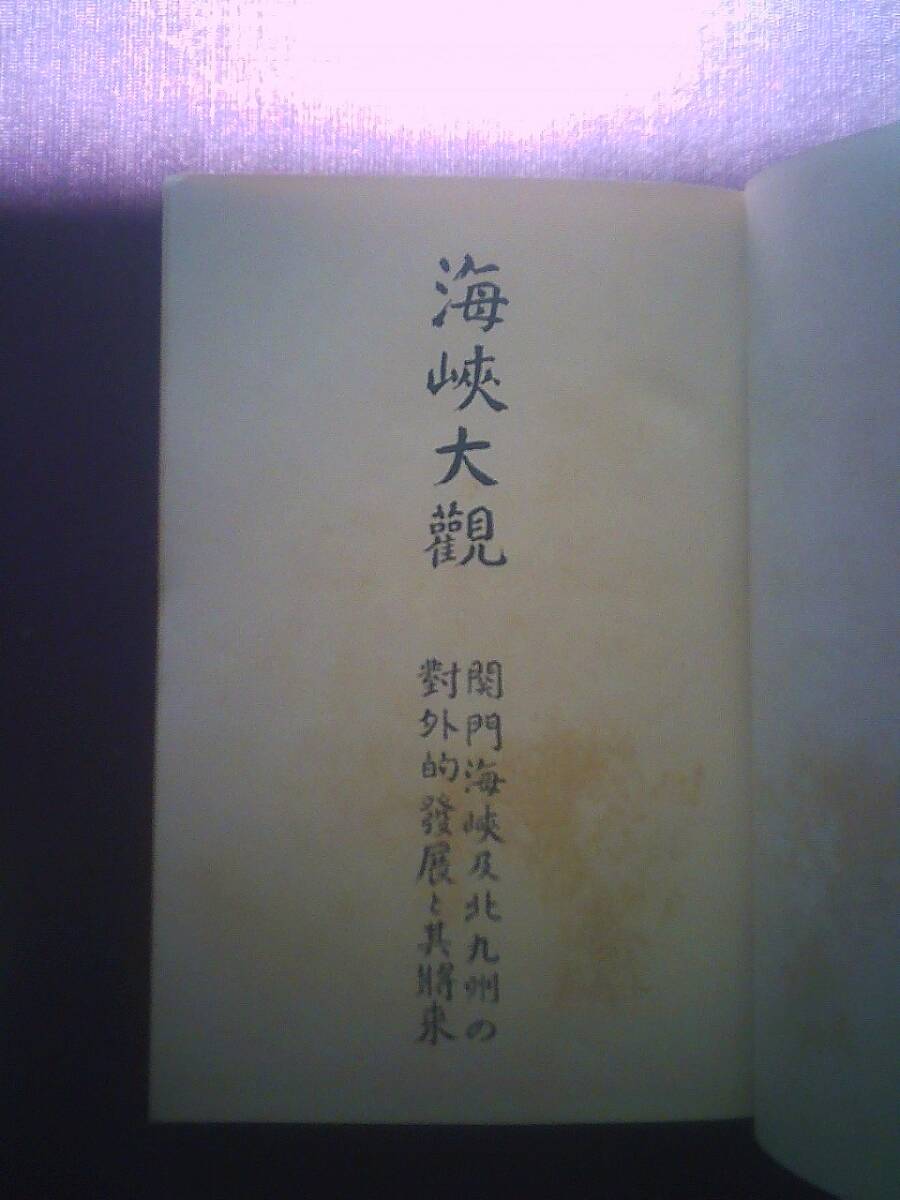 海峽大觀
関門海峽及北九州の
對外的發展と其將來